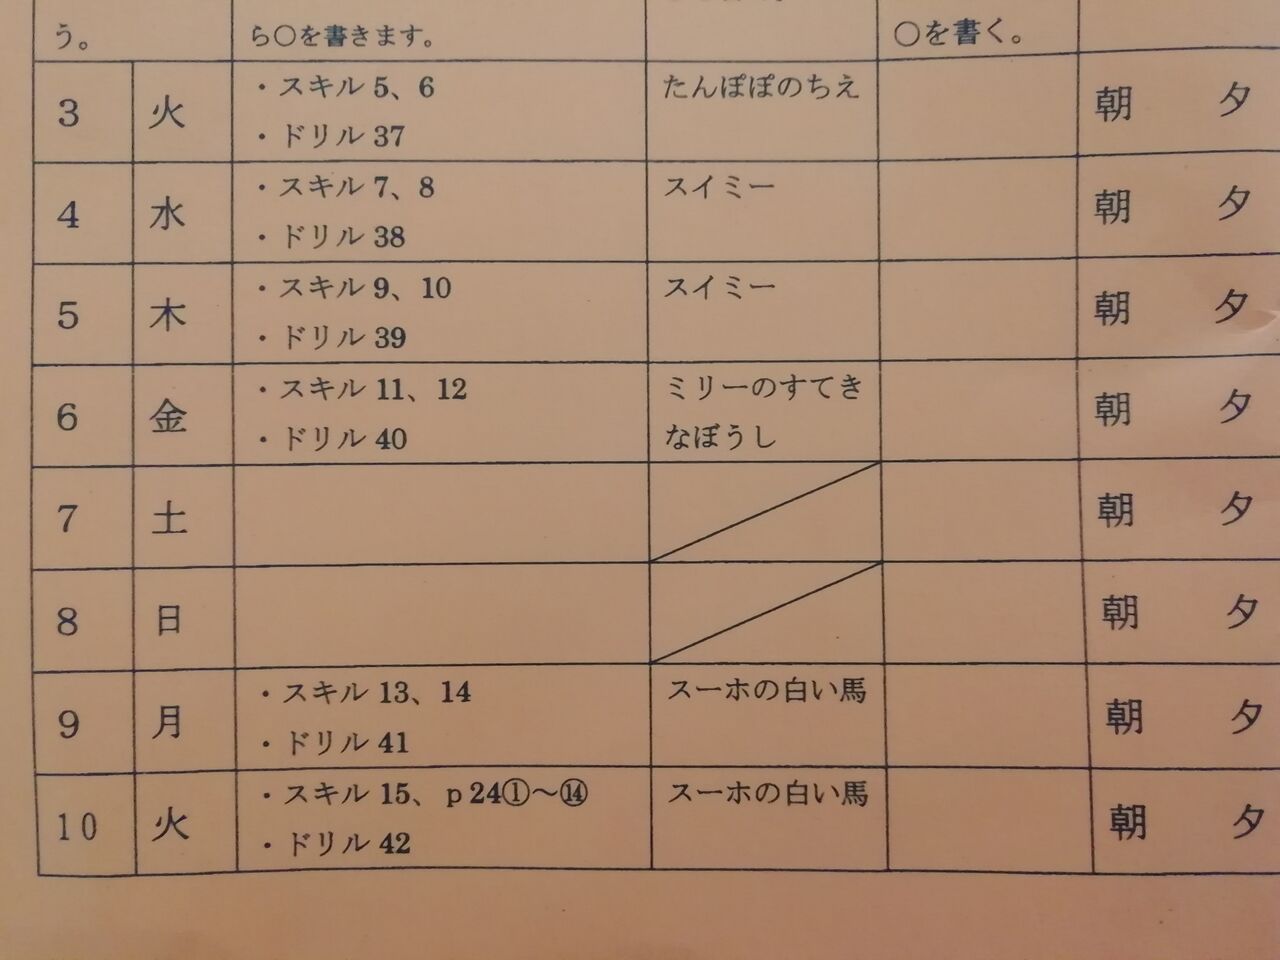 う。
ら○を書きます。
○を書く。
3 火 ・スキル 5、6 たんぽぽのちえ 朝 夕
・ドリル 37
4 水 ・スキル 7、8 スイミー 朝 夕
・ドリル 38
5 木 ・スキル 9、10 スイミー 朝 夕
・ドリル 39
6 金 ・スキル 11、12 ミリーのすてき 朝 夕
・ドリル 40 なぼうし
7 土 朝 夕
8 日 朝 夕
9 月 ・スキル 13、14 スーホの白い馬 朝 夕
・ドリル 41
10 火 ・スキル 15、ｐ24①～⑭ スーホの白い馬 朝 夕
・ドリル 42